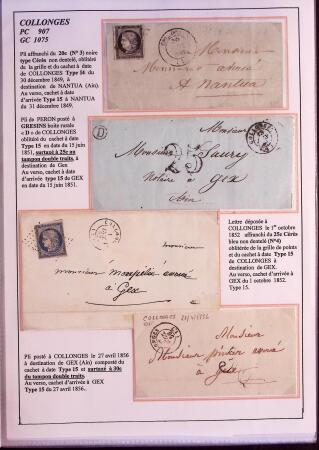 COLLONGES
PC 907
GC 1075
Pli affranchi du 20c (N° 3) noire
type Cérès non dentelé, oblitérée
de la grille et du cachet à date
de COLLONGES Type 14 du
30 décembre 1849, à
destination de NANTUA (Ain).
Au verso, cachet à date
d'arrivée Type 15 à NANTUA
du 31 décembre 1849.
Monsieur avoué
A Nantua
Pli de PERON posté à
GRESINS boite rurale
« D » de COLLONGES
oblitéré du cachet à date
Type 15 en date du 15 juin
1851, surtaxé à 25c au
tampon double traits, à
destination de Gex
Au verso, cachet à date
d'arrivée type 15 de GEX
en date du 15 juin 1851.
D
Monsieur
Monsieur
Notaire à Gex
Ain
Lettre déposée à
COLLONGES le 1er octobre
1852 affranchi du 25c Cérès
bleu non dentelé (N°4)
oblitérée de la grille de points
et du cachet à date Type 15
de COLLONGES à
destination de GEX.
Au verso, cachet d'arrivée à
GEX du 1 octobre 1852.
Type 15.
Monsieur
à Gex
Pli posté à COLLONGES le 27 avril 1856
à destination de GEX (Ain) composé du
cachet à date Type 15 et surtaxé à 30c
du tampon double traits.
Au verso, cachet d'arrivée à GEX
Type 15 du 27 avril 1856.
COLLONGES 27/4/1856
Monsieur
à Gex